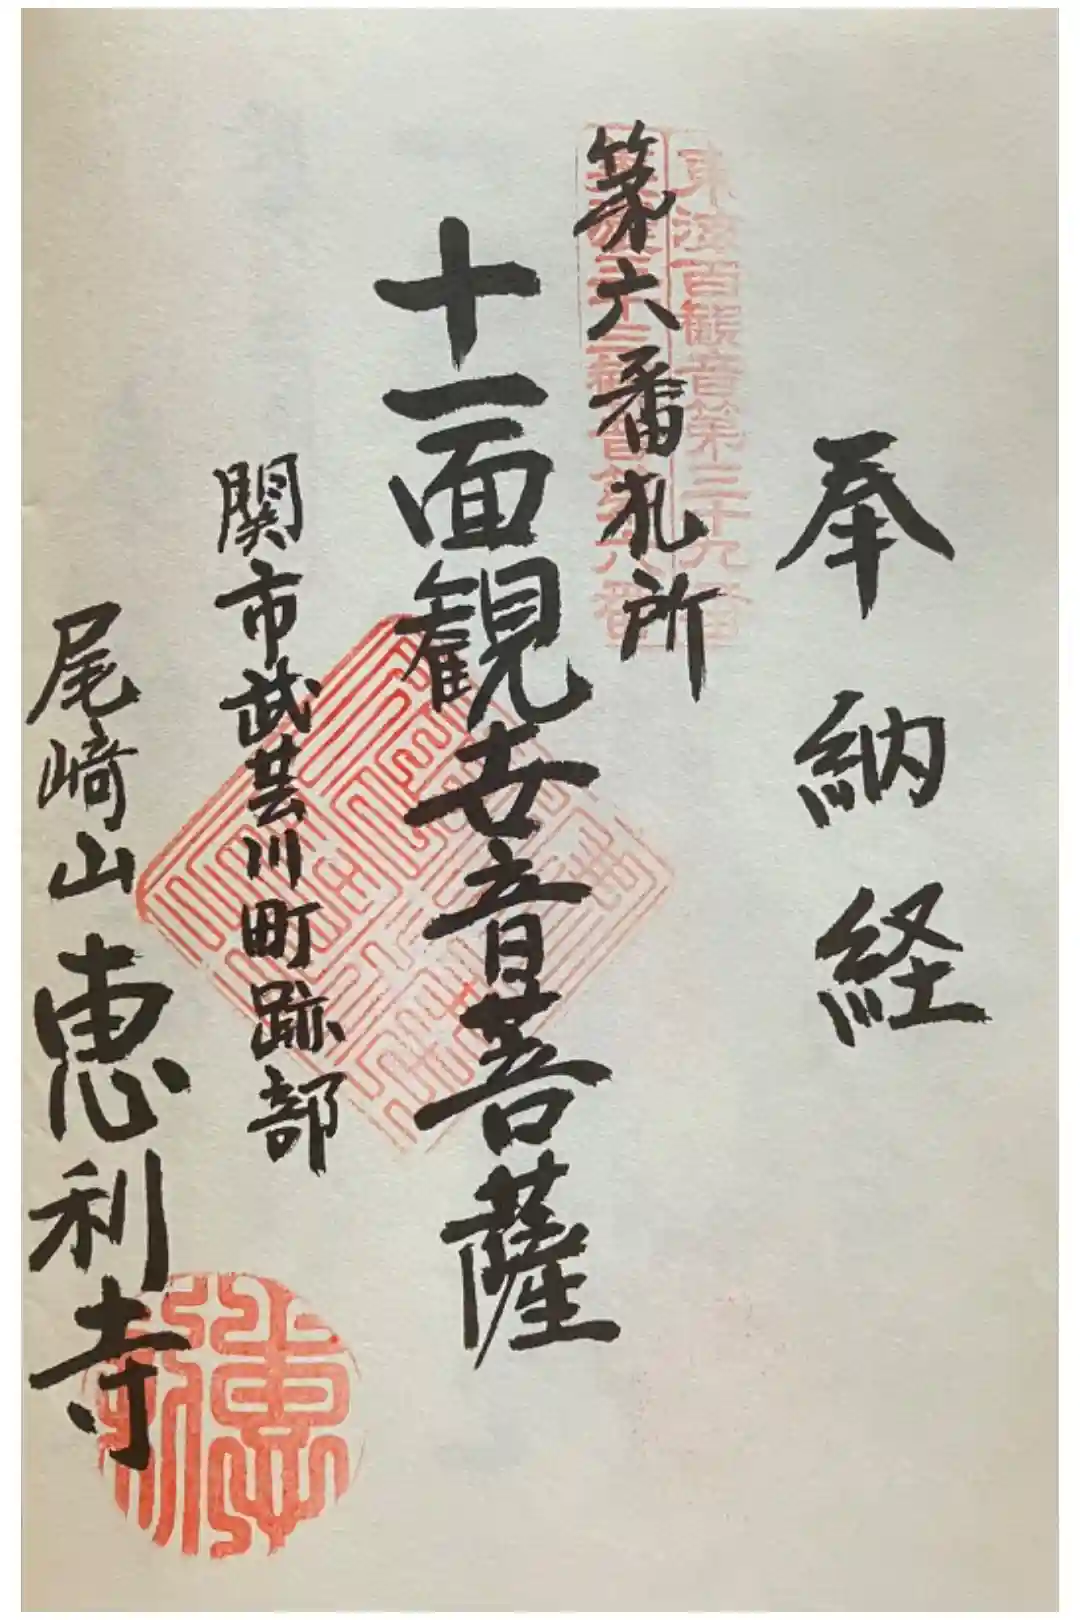 奉納経
東海百観音第三十九番
美濃三十三観音第六番
第六番札所
十一面観世音菩薩
関市武芸川町跡部
尾﨑山 恵利寺